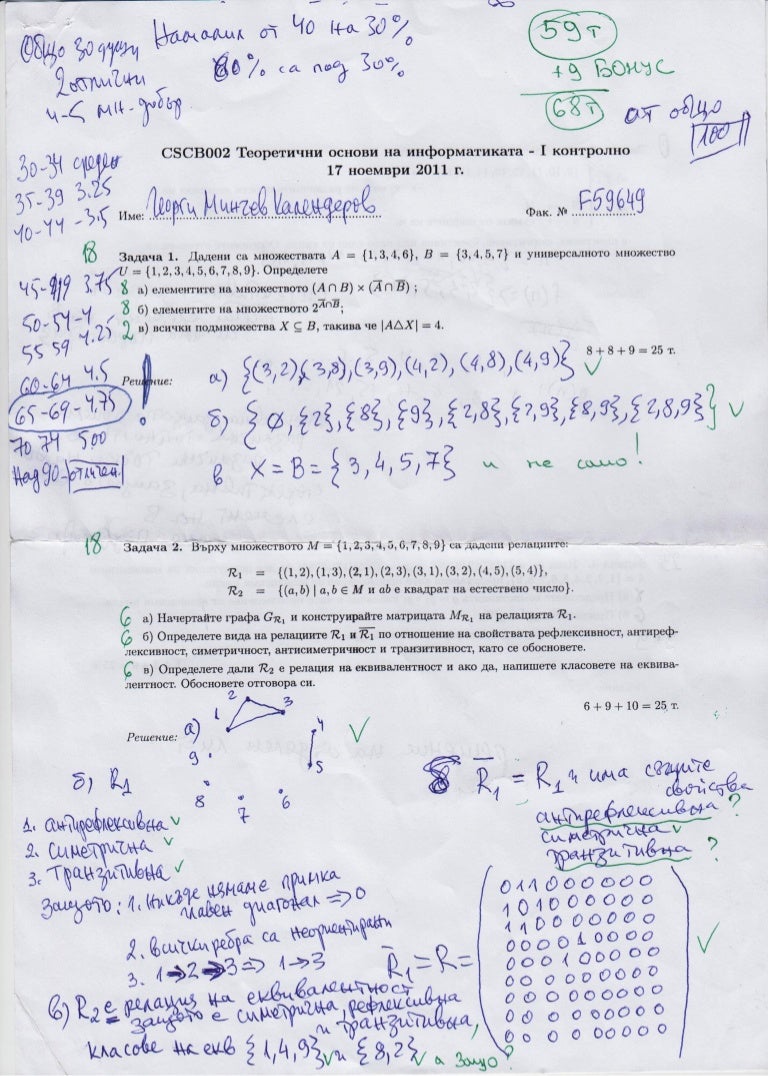 Общо 30 души
2 отлични
4-5 мн. добър
Намалил от 40 на 30%
60% са под 30%
59т
+9 БОНУС
68т от общо
100
CSCB002 Теоретични основи на информатиката - I контролно
17 ноември 2011 г.
Име: Георги Минчев Календеров Фак. № F59649
30-34 среден
35-39 3.25
40-44 -3.5
45-49 3.75
50-54-4
55 59 4.25
60-64 4.5
65-69-4.75
70 74 500
Над 90-отличен
18 Задача 1. Дадени са множествата A = {1, 3, 4, 6}, B = {3, 4, 5, 7} и универсалното множество
U = {1, 2, 3, 4, 5, 6, 7, 8, 9}. Определете
8 а) елементите на множеството (A ∩ B) × (A̅ ∩ B̅) ;
8 б) елементите на множеството 2^(A̅∩B̅);
2 в) всички подмножества X ⊆ B, такива че |A△X| = 4.
8 + 8 + 9 = 25 т.
Решение: а) {(3,2),(3,8),(3,9),(4,2),(4,8),(4,9)} ✓
б) {∅,{2},{8},{9},{2,8},{2,9},{8,9},{2,8,9}} ✓
в X = B = {3, 4, 5, 7} и не само!
18 Задача 2. Върху множеството M = {1, 2, 3, 4, 5, 6, 7, 8, 9} са дадени релациите:
R₁ = {(1, 2), (1, 3), (2, 1), (2, 3), (3, 1), (3, 2), (4, 5), (5, 4)},
R₂ = {(a, b) | a, b ∈ M и ab е квадрат на естествено число}.
6 а) Начертайте графа G_R₁ и конструирайте матрицата M_R₁ на релацията R₁.
6 б) Определете вида на релациите R₁ и R̅₁ по отношение на свойствата рефлексивност, антиреф-
лексивност, симетричност, антисиметричност и транзитивност, като се обосновете.
6 в) Определете дали R₂ е релация на еквивалентност и ако да, напишете класовете на еквива-
лентност. Обосновете отговора си.
6 + 9 + 10 = 25 т.
Решение: а) ✓
1 2 3
4
5
6
7
8
9
б) R₁
1. антирефлексивна ✓
2. Симетрична ✓
3. Транзитивна ✓
Защото: 1. Никъде нямаме примка
главен диагонал => 0
2. всички ребра са неориентирани
3. 1→2→3 => 1→3
R̅₁ = R₁ и има същите
свойства
антирефлексивна ?
симетрична ✓
транзитивна ?
R̅₁ = R =
0 1 1 0 0 0 0 0 0
1 0 1 0 0 0 0 0 0
1 1 0 0 0 0 0 0 0
0 0 0 0 1 0 0 0 0
0 0 0 1 0 0 0 0 0
0 0 0 0 0 0 0 0 0
0 0 0 0 0 0 0 0 0
0 0 0 0 0 0 0 0 0
0 0 0 0 0 0 0 0 0
✓
в) R₂ е релация на еквивалентност
защото е симетрична, рефлексивна
и транзитивна,
класове на екв {1,4,9} ✓ и {8,2} ✓ а защо?